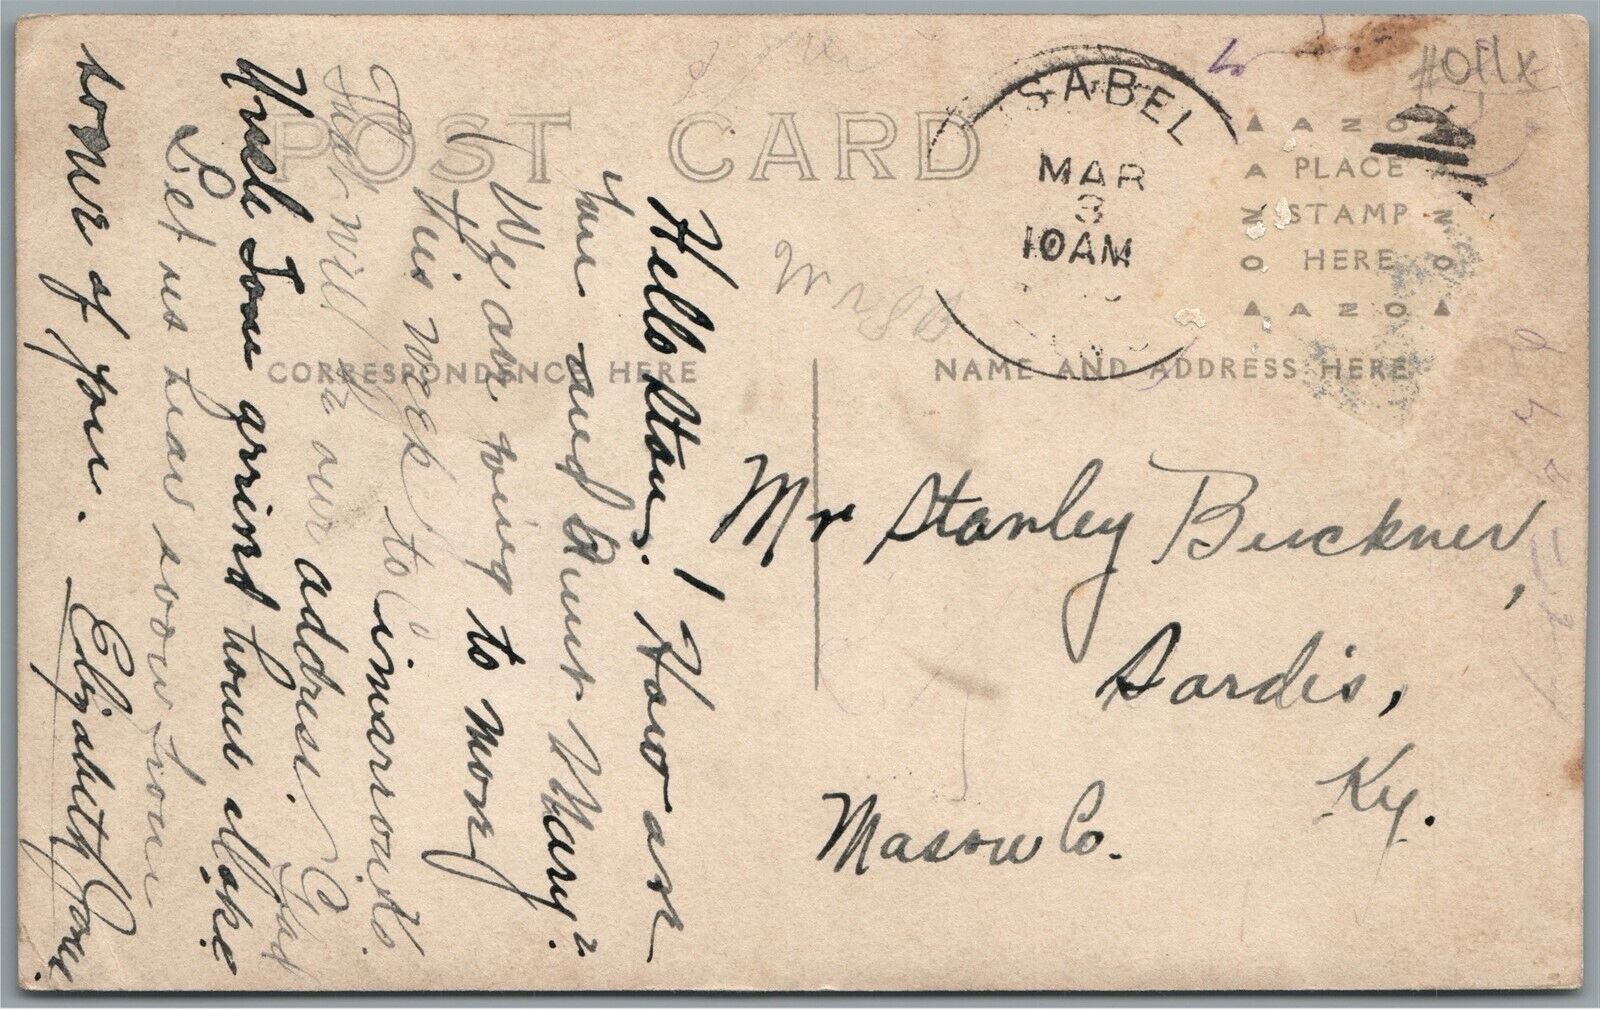 POST CARD
SABEL
MAR
3
10AM
AZO
PLACE
STAMP
HERE
AZO
CORRESPONDENCE HERE
NAME AND ADDRESS HERE
Mr Stanley Buckner,
Sardis,
Ky.
Mason Co.
Hello Stan. ! How are
you and Aunt Mary?
We are going to move
this week to
That will be our address. Glad
Uncle Tom arrived home alake
Let us hear soon from
some of you. Elizabeth